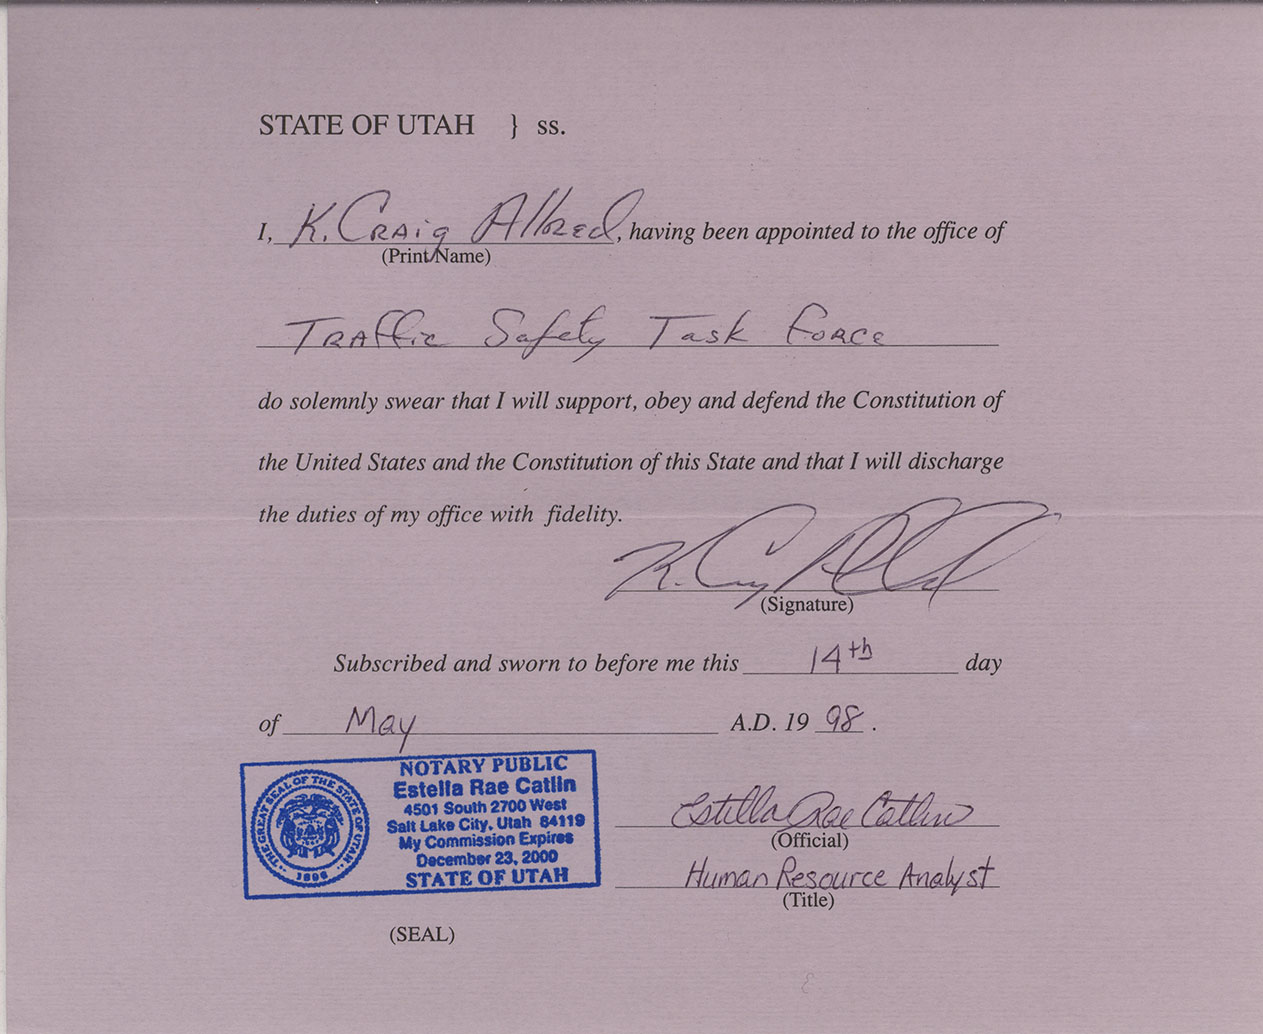 STATE OF UTAH } ss.
I, K. Craig Allred, having been appointed to the office of
(Print Name)
Traffic Safety Task Force
do solemnly swear that I will support, obey and defend the Constitution of
the United States and the Constitution of this State and that I will discharge
the duties of my office with fidelity.
K. Craig Allred
(Signature)
Subscribed and sworn to before me this 14th day
of May A.D. 19 98.
NOTARY PUBLIC
Estella Rae Catlin
4501 South 2700 West
Salt Lake City, Utah 84119
My Commission Expires
December 23, 2000
STATE OF UTAH
THE GREAT SEAL OF THE STATE OF UTAH
1896
Estella Rae Catlin
(Official)
Human Resource Analyst
(Title)
(SEAL)